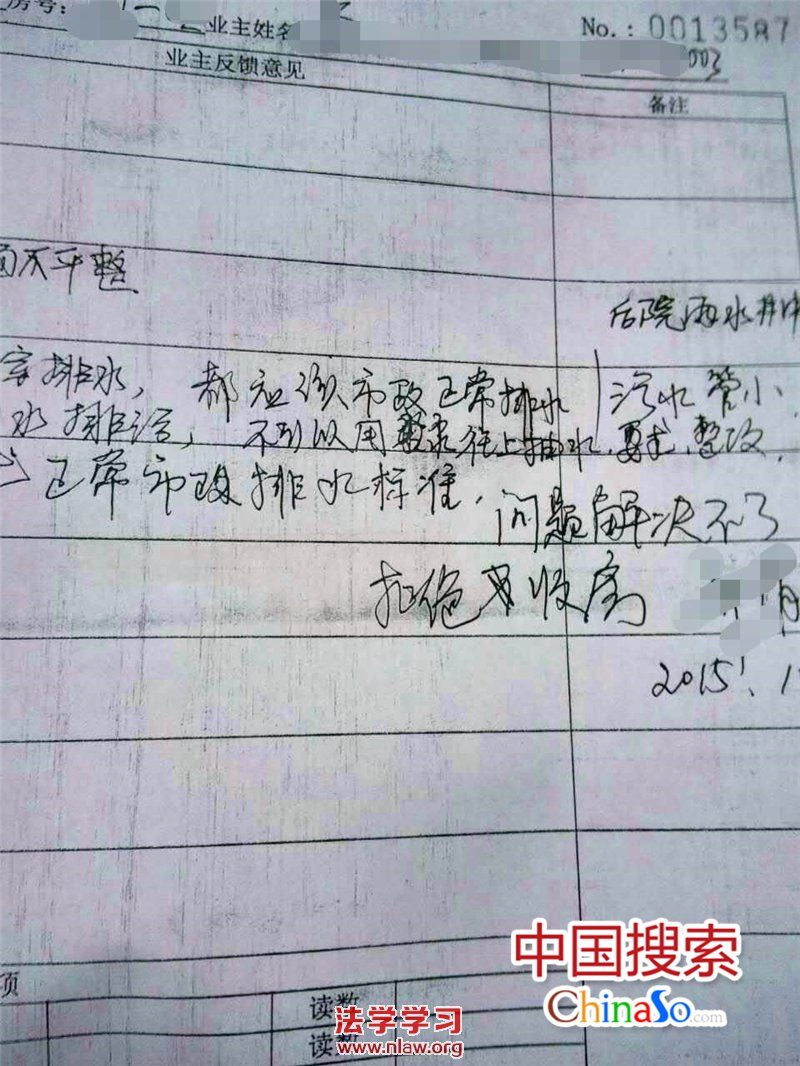 房号:
业主姓名 No.: 0013587
003
业主反馈意见
备注
面不平整
后院雨水井中
排水, 都应该市政正常排水 污水管小,
水排污, 不到以用 往上抽水, 要求, 整改,
正常市政排水标准, 问题解决不了
拒绝收房
月
2015.1
项
读数
读数
中国搜索
ChinaSo.com
法学学习
www.nlaw.org